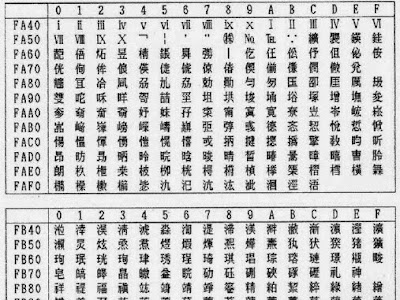 0 1 2 3 4 5 6 7 8 9 A B C D E F
FA40 ⅰ ⅱ ⅲ ⅳ ⅴ ⅵ ⅶ ⅷ ⅸ ⅹ Ⅰ Ⅱ Ⅲ Ⅳ Ⅴ Ⅵ
FA50 Ⅶ Ⅷ Ⅸ Ⅹ ¬ ¦ ' " ㈱ № ℡ ∵ 纊 褜 鍈 銈
FA60 蓜 俉 炻 昱 棈 鋹 曻 彅 丨 仡 仼 伀 伃 伹 佖 侒
FA70 侊 侚 侔 俍 偀 倢 俿 倞 偆 偰 偂 傔 僴 僘 兊
FA80 兤 冝 冾 凬 刕 劜 劦 勀 勛 匀 匇 匤 卲 厓 厲 叝
FA90 﨎 咜 咊 咩 哿 喆 坙 坥 垬 埈 埇 﨏 塚 增 墲 夋
FAA0 奓 奛 奝 奣 妤 妺 孖 寀 甯 寘 寬 尞 岦 岺 峵 崧
FAB0 嵓 﨑 嵂 嵭 嶸 嶹 巐 弡 弴 彧 德 忞 恝 悅 悊 惞
FAC0 惕 愠 惲 愑 愷 愰 憘 戓 抦 揵 摠 撝 擎 敎 昀 昕
FAD0 昻 昉 昮 昞 昤 晥 晗 晙 晴 晳 暙 暠 暲 暿 曺 朎
FAE0 朗 杦 枻 桒 柀 栁 桄 棏 﨓 楨 﨔 榘 槢 樰 橫 橆
FAF0 橳 橾 櫢 櫤 毖 氿 汜 沆 汯 泚 洄 涇 浯
0 1 2 3 4 5 6 7 8 9 A B C D E F
FB40 涖 涬 淏 淸 淲 淼 渹 湜 渧 渼 溿 澈 澵 濵 瀅 瀇
FB50 瀨 炅 炫 焏 焄 煜 煆 煇 凞 燁 燾 犱 犾 猤 猪 獷
FB60 玽 珉 珖 珣 珒 琇 珵 琦 琪 琩 琮 瑢 璉 璟 甁 畯
FB70 皂 皜 皞 皛 皦 益 睆 劯 砡 硎 硤 硺 礰 礼 神
FB80 祥 禔 福 禛 竑 竧 靖 竫 箞 精 絈 絜 綷 綠 緖 繒